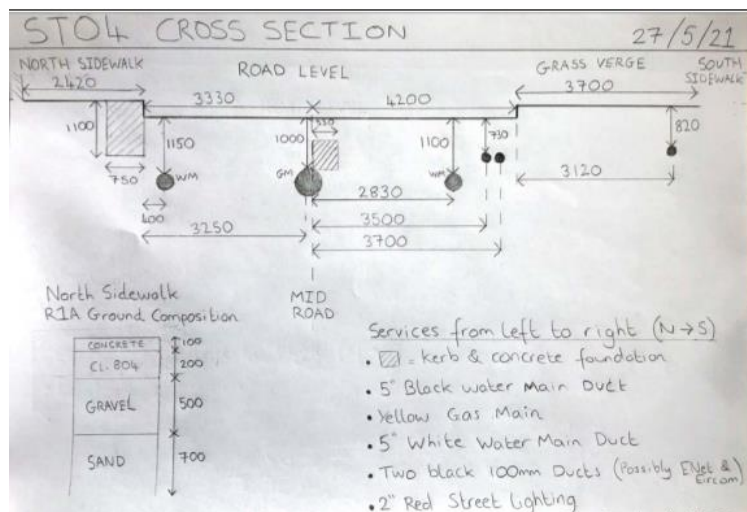 STO4 CROSS SECTION
27/5/21
NORTH SIDEWALK
ROAD LEVEL
GRASS VERGE
SOUTH SIDEWALK
2420
3330
4200
3700
1100
1150
1000
1100
730
820
750
WM
GM
WM
400
2830
3120
3250
3500
3700
North Sidewalk
R1A Ground Composition
MID
ROAD
CONCRETE
100
CL. 804
200
GRAVEL
500
SAND
700
Services from left to right (N→S)
• = kerb & concrete foundation
• 5" Black water Main Duct
• Yellow Gas Main
• 5" White Water Main Duct
• Two black 100mm Ducts (Possibly ENet & Eircom)
• 2" Red Street Lighting